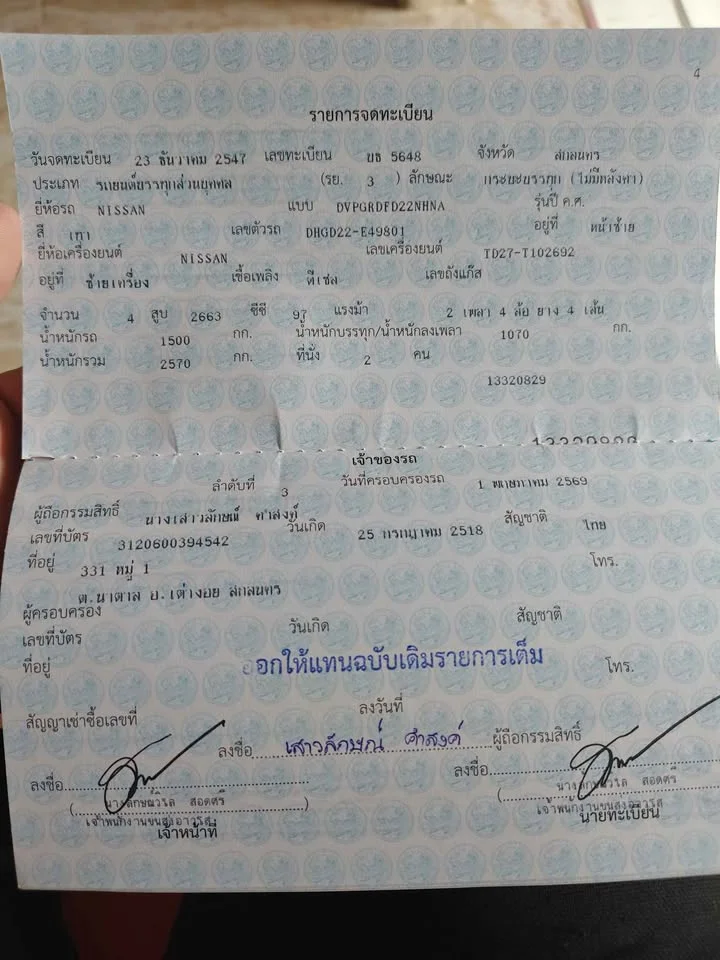 4
รายการจดทะเบียน
วันจดทะเบียน 23 ธันวาคม 2547 เลขทะเบียน บธ 5648 จังหวัด สกลนคร
ประเภท รถยนต์บรรทุกส่วนบุคคล (รย. 3 ) ลักษณะ กระบะบรรทุก (ไม่มีหลังคา)
ยี่ห้อรถ NISSAN แบบ DVPGRDFD22NHNA รุ่นปี ค.ศ.
สี เทา เลขตัวรถ DHGD22-E49801 อยู่ที่ หน้าซ้าย
ยี่ห้อเครื่องยนต์ NISSAN เลขเครื่องยนต์ TD27-T102692
อยู่ที่ ซ้ายเครื่อง เชื้อเพลิง ดีเซล เลขถังแก๊ส
จำนวน 4 สูบ 2663 ซีซี 97 แรงม้า 2 เพลา 4 ล้อ ยาง 4 เส้น
น้ำหนักรถ 1500 กก. น้ำหนักบรรทุก/น้ำหนักลงเพลา 1070 กก.
น้ำหนักรวม 2570 กก. ที่นั่ง 2 คน
13320829
เจ้าของรถ
ลำดับที่ 3 วันที่ครอบครองรถ 1 พฤษภาคม 2569
ผู้ถือกรรมสิทธิ์ นางเสาวลักษณ์ คำสงค์
เลขที่บัตร 3120600394542 วันเกิด 25 กรกฎาคม 2518 สัญชาติ ไทย
ที่อยู่ 331 หมู่ 1 โทร.
ต.นาตาล อ.เต่างอย สกลนคร
ผู้ครอบครอง
เลขที่บัตร วันเกิด สัญชาติ
ที่อยู่ ออกให้แทนฉบับเดิมรายการเต็ม โทร.
สัญญาเช่าซื้อเลขที่ ลงวันที่
ลงชื่อ เสาวลักษณ์ คำสงค์ ผู้ถือกรรมสิทธิ์
ลงชื่อ ลงชื่อ
เจ้าพนักงานขนส่งอาวุโส เจ้าพนักงานขนส่งอาวุโส
เจ้าหน้าที่ นายทะเบียน